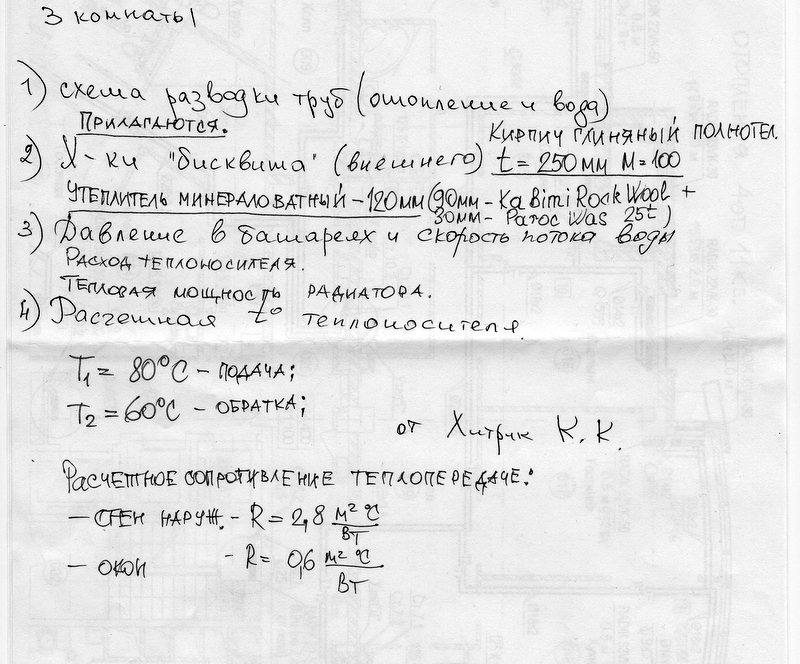 3 комнаты
1) схема разводки труб (отопление и вода)
Прилагаются.
Кирпич глиняный полнотел.
2) Х-ки "бисквита" (внешнего) t = 250 мм М=100
Утеплитель минераловатный – 120мм (90мм – Ka Bimi Rock Wool +
30мм – Paroc Was 25t)
3) Давление в батареях и скорость потока воды
Расход теплоносителя.
Тепловая мощность радиатора.
4) Расчетная t° теплоносителя
T1 = 80°C – подача;
T2 = 60°C – обратка;
от Хитрик К. К.
Расчетное сопротивление теплопередаче:
– стен наруж. – R = 2,8 м² °С/Вт
– окон – R = 0,6 м² °С/Вт